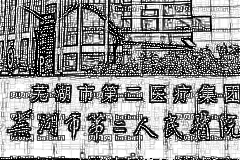 芜湖市第二医疗集团
蕪湖市第二人民醫院